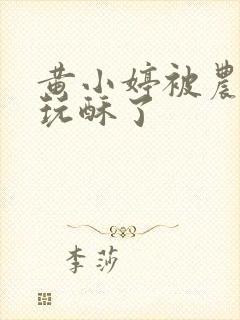 黄小婷被農
玩酥了
李莎